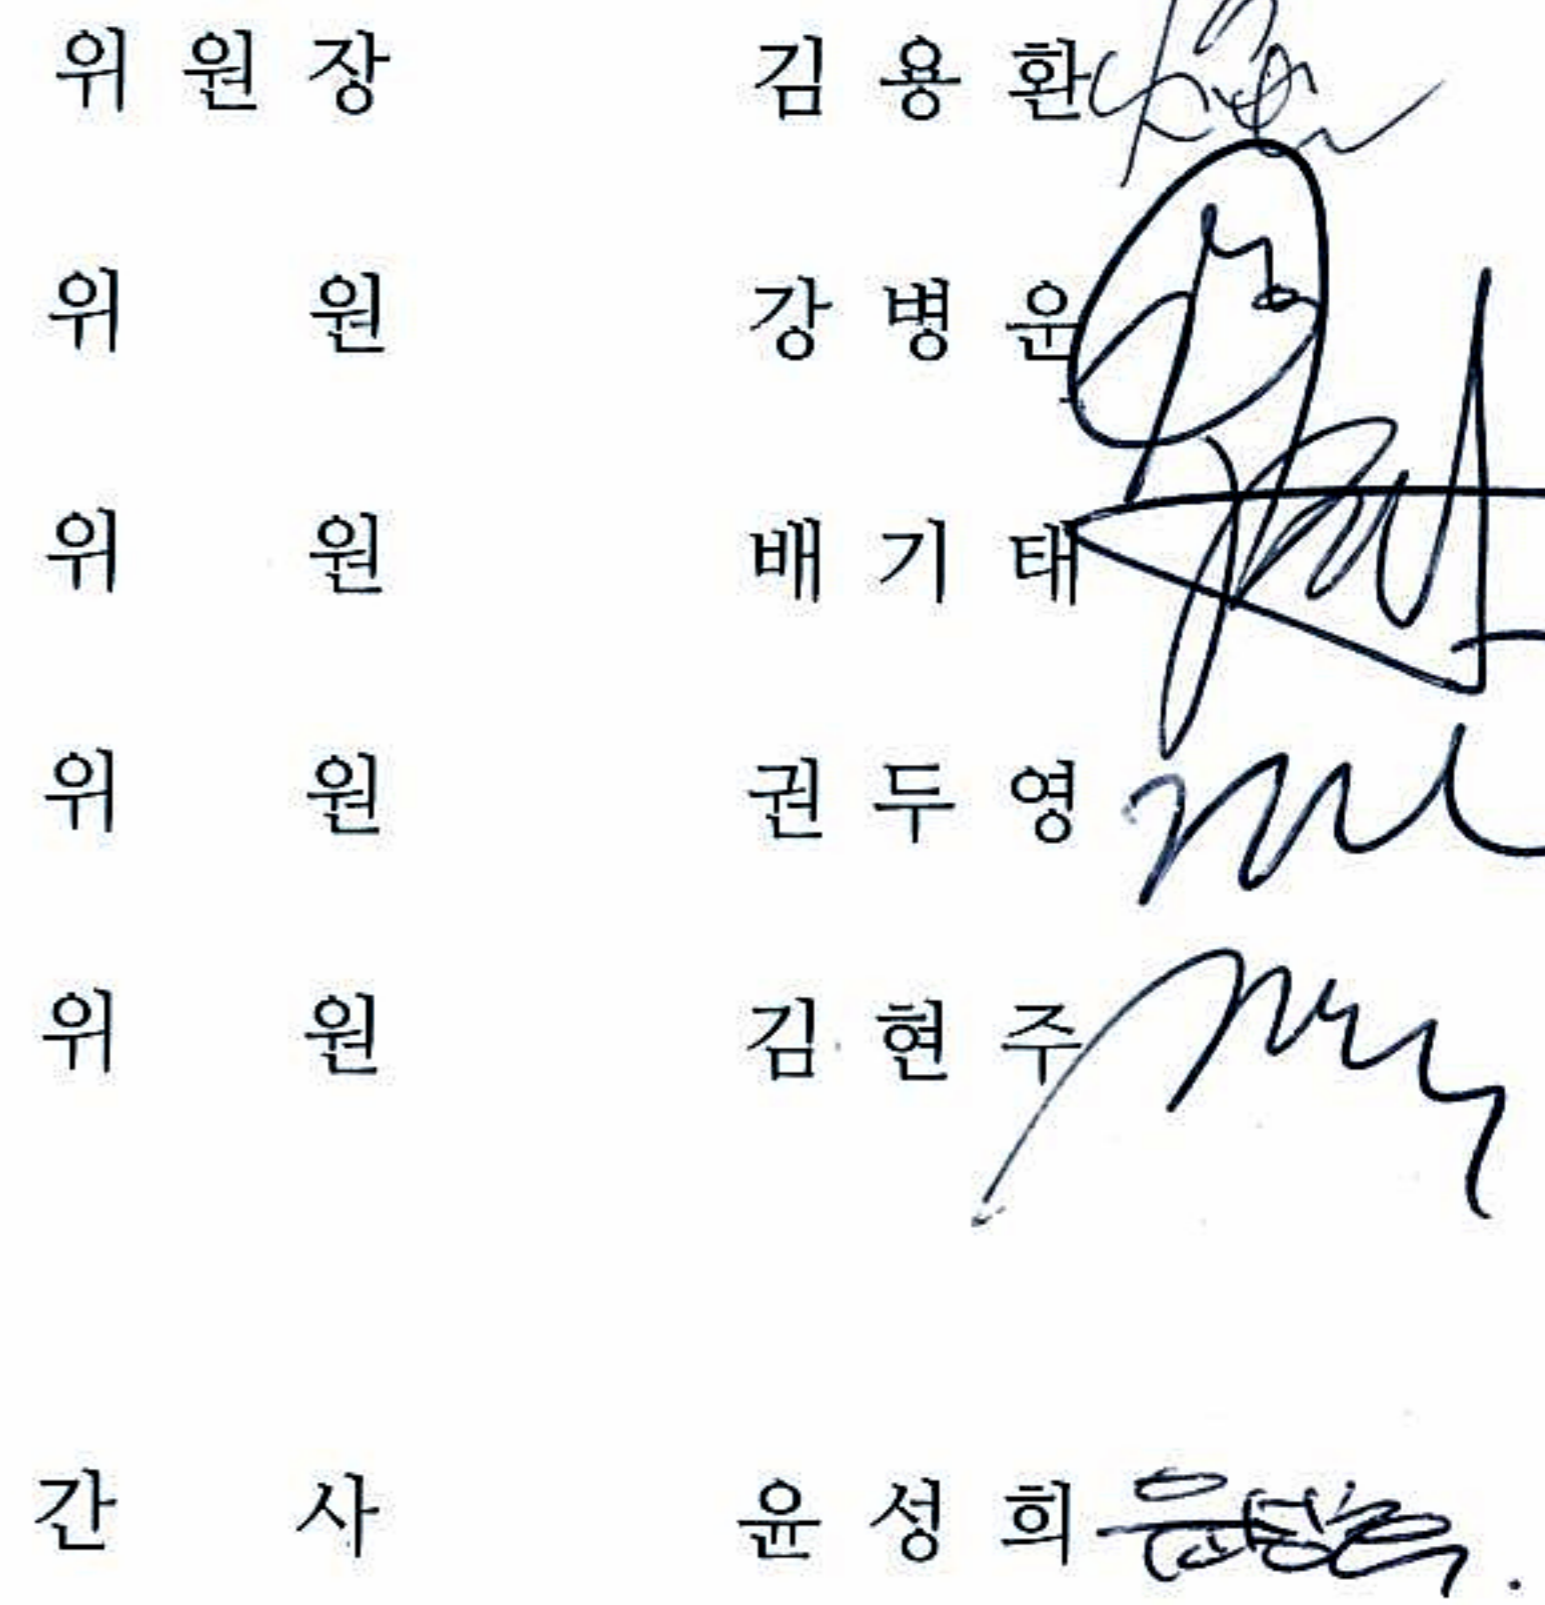 위 원 장 김 용 환
위 원 강 병 운
위 원 배 기 태
위 원 권 두 영
위 원 김 현 주
간 사 윤 성 희